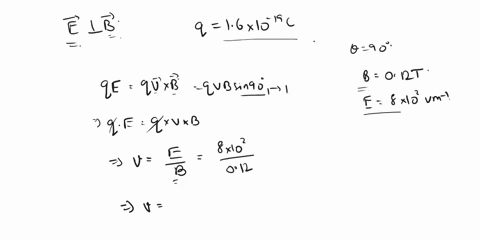 E⃗ ⊥ B⃗   q = 1.6×10⁻¹⁹ C
θ = 90°
B = 0.12T.
E = 8×10² Vm⁻¹
qE = qV⃗ × B⃗ = qVB sin90° → 1
⇒ q.E = q × V × B
⇒ V = E/B = 8×10²/0.12
⇒ V =